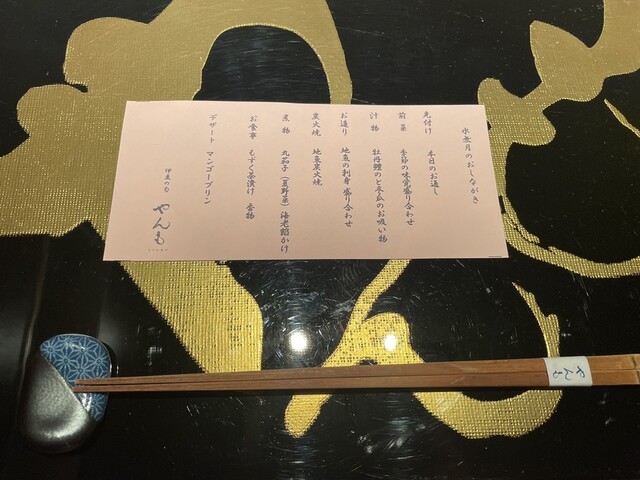 水無月のおしながき
先付け 本日のお通し
前菜 季節の味覚盛り合わせ
汁物 牡丹鱧のと冬瓜のお吸い物
お造り 地魚の刺身 盛り合わせ
炭火焼 地魚炭火焼
煮物 丸茄子(夏野菜)海老餡かけ
お食事 もずく茶漬け 香物
デザート マンゴープリン
伊豆の旬
やんも
やんも